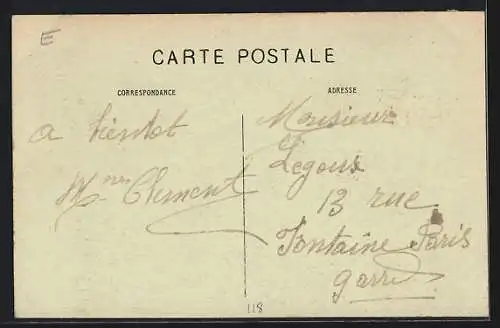 E
CARTE POSTALE
CORRESPONDANCE
a bientot
Clement
ADRESSE
Monsieur
Legoux
13 rue
Fontaine Paris
118